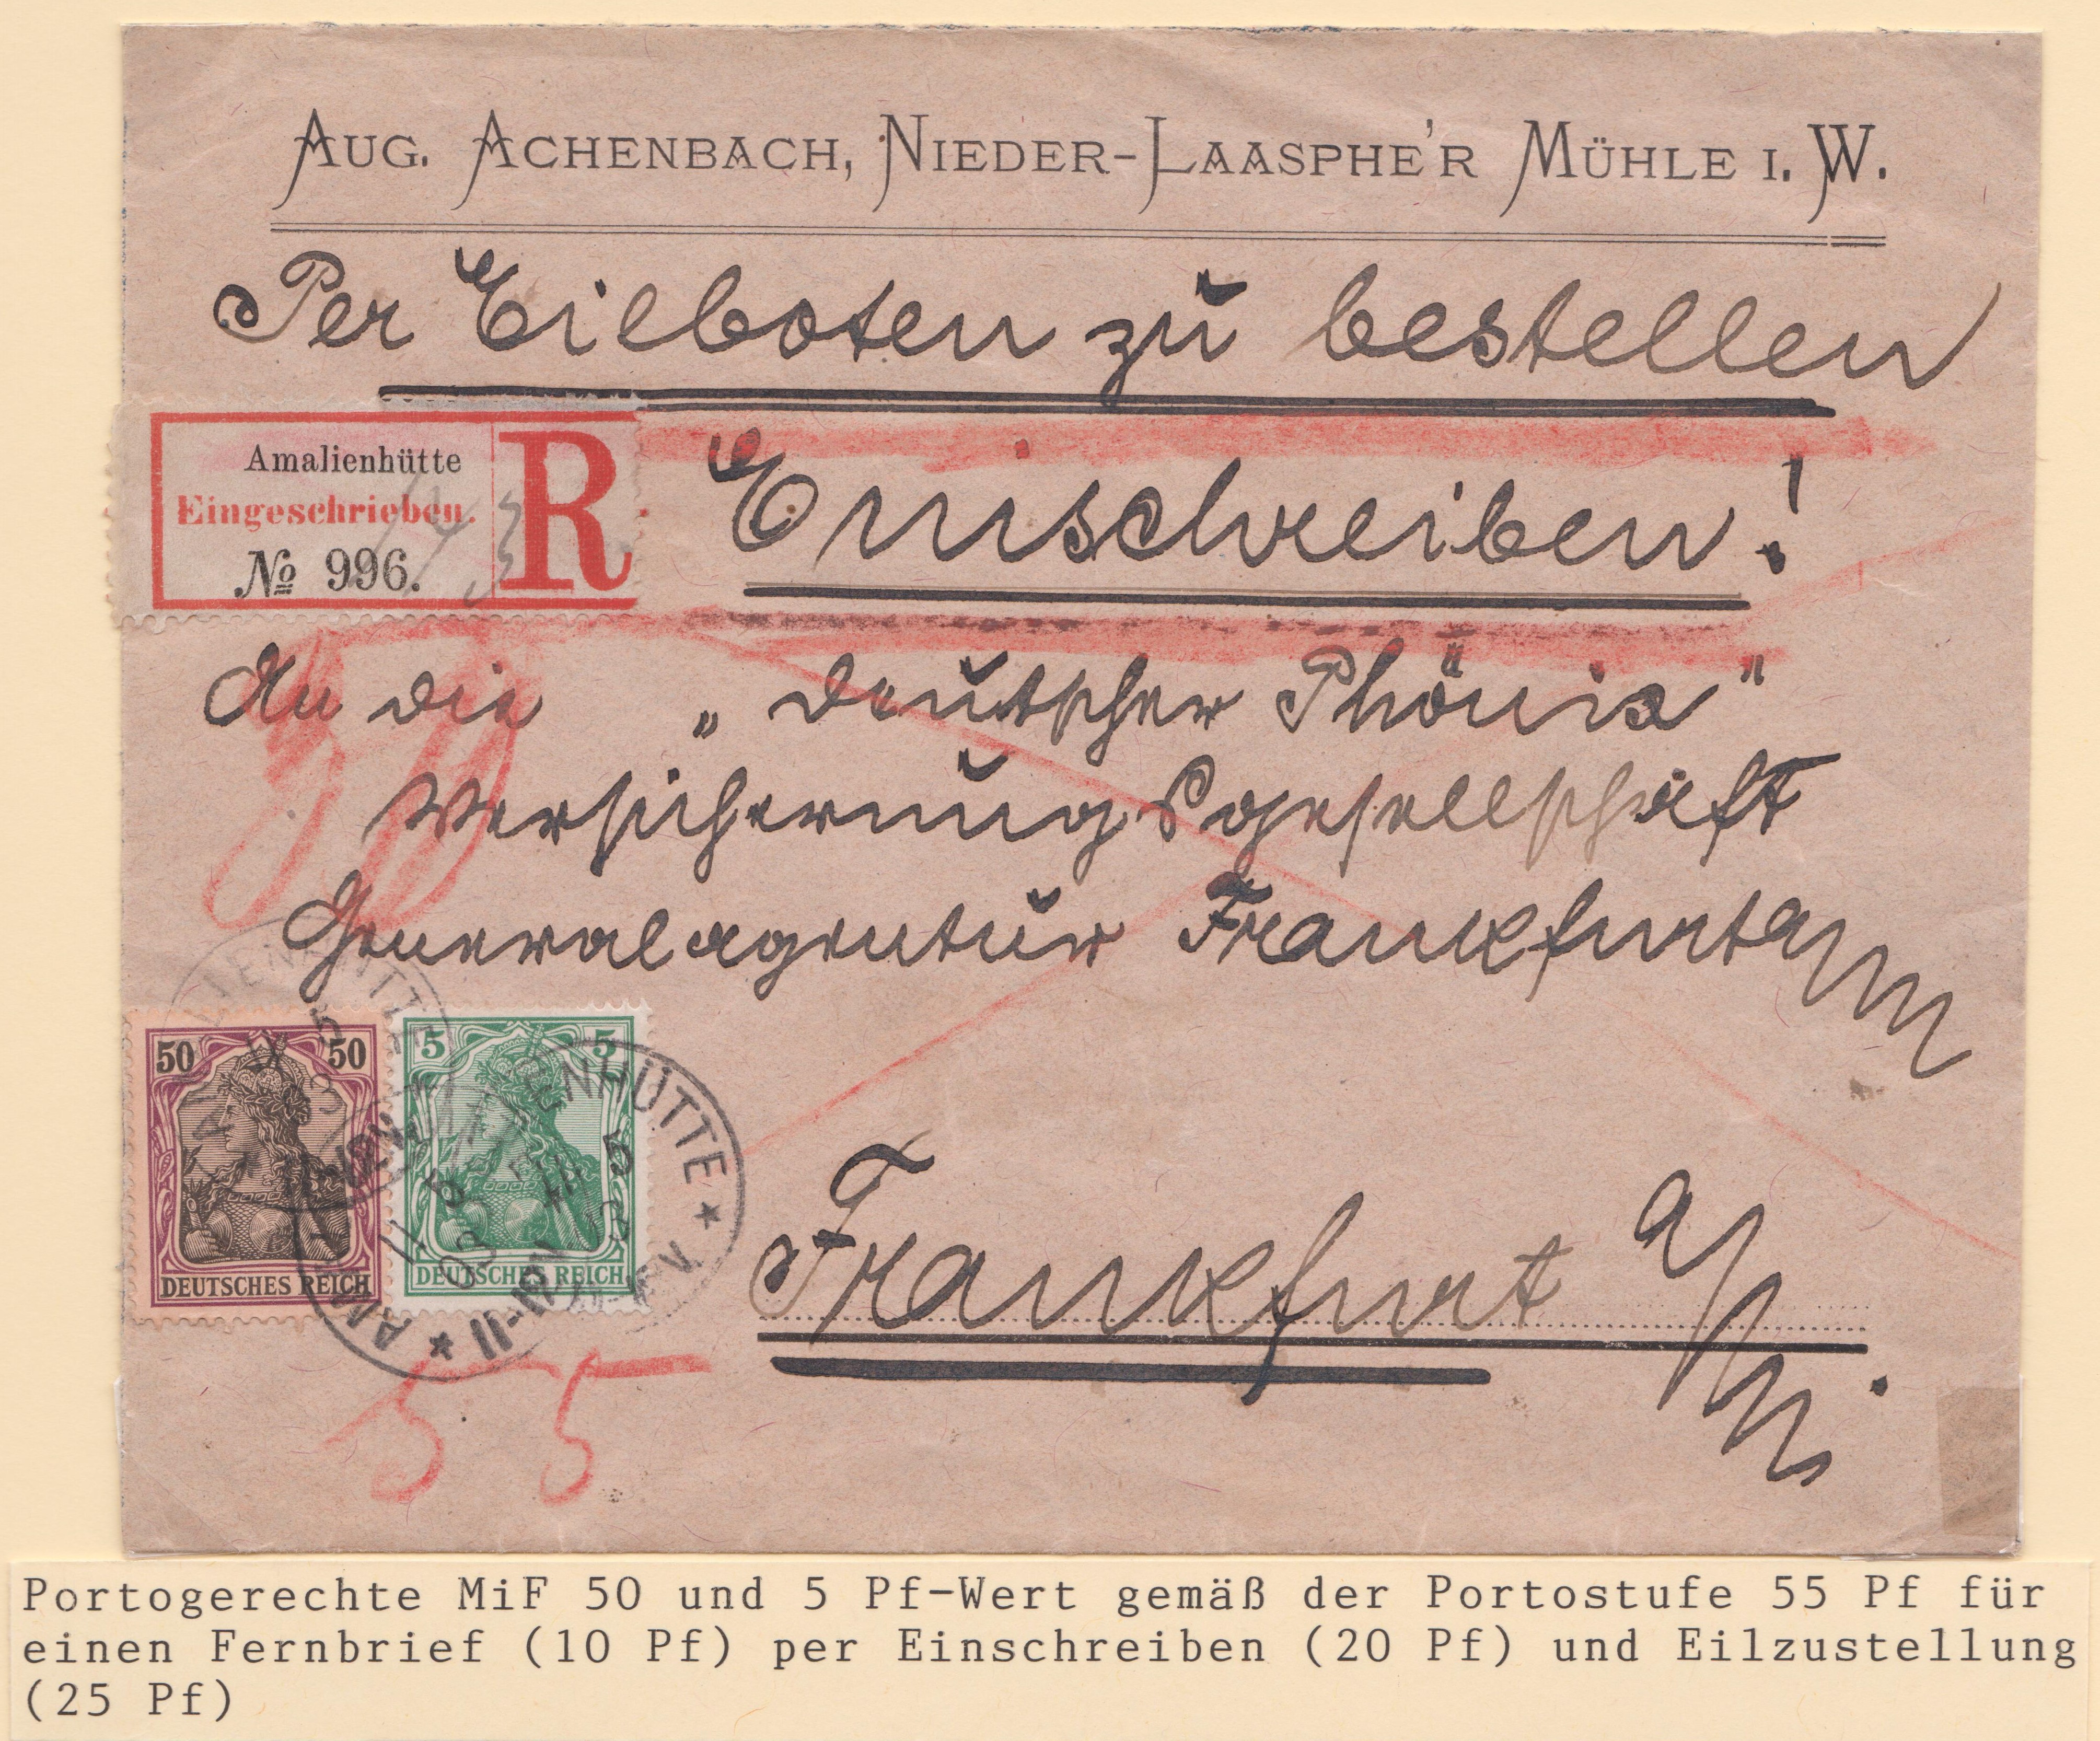 AUG. ACHENBACH, NIEDER-LAASPHE'R MÜHLE I. W.
Per Eilboten zu bestellen
Amalienhütte
Eingeschrieben.
No 996.
R
Einschreiben!
An die „Deutscher Phönix"
Versicherungsgesellschaft
Generalagentur Frankfurt a/M
50 50
DEUTSCHES REICH
5 5
DEUTSCHES REICH
AMALIENHÜTTE
Frankfurt a/M.
55
Portogerechte MiF 50 und 5 Pf-Wert gemäß der Portostufe 55 Pf für
einen Fernbrief (10 Pf) per Einschreiben (20 Pf) und Eilzustellung
(25 Pf)